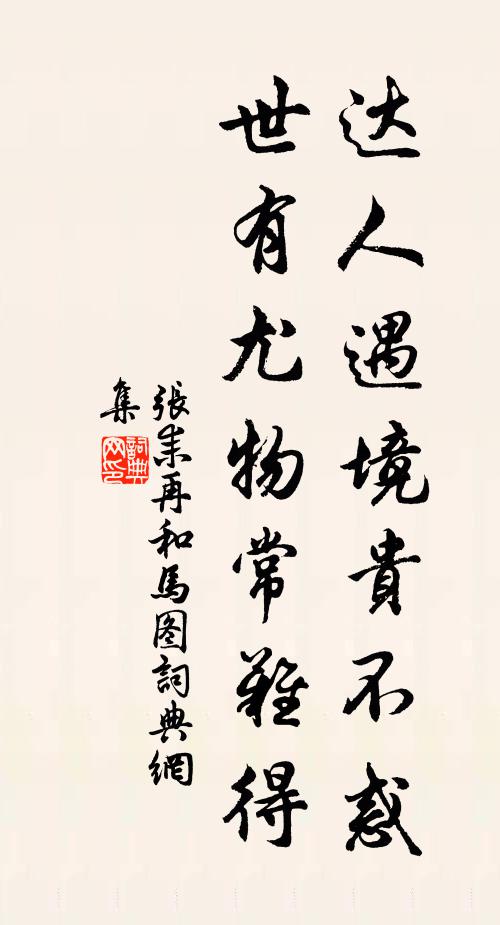 达人遇境貴不惑
世有尤物常難得
張耒再和馬图詞典網
集
詞典网印